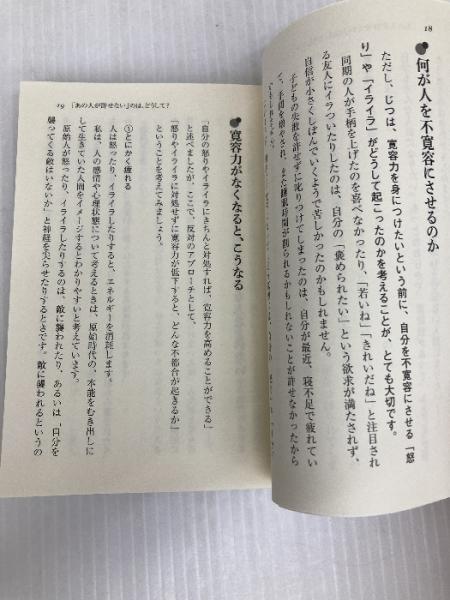 18
何が人を不寛容にさせるのか
ただし、じつは、寛容力を身につけたいという前に、自分を不寛容にさせる「怒
り」や「イライラ」がどうして起こったのかを考えることが、とても大切です。
同期の人が手柄を上げたのを喜べなかったり、「若いね」「きれいだね」と注目され
る友人にイラついたりしたのは、自分の「褒められたい」という欲求が満たされず、
自信が小さくしぼんでいくようで苦しかったのかもしれません。
子どもの失敗を許せずに叱りつけてしまったのは、自分が最近、寝不足で疲れてい
て、手間を増やされ、また睡眠時間が削られるかもしれないことが許せなかったから
19 「あの人が許せない」のは、どうして?
寛容力がなくなると、こうなる
「自分の怒りやイライラにきちんと対処すれば、寛容力を高めることができる」
と述べましたが、ここで、反対のアプローチとして、
「怒りやイライラに対処せずに寛容力が低下すると、どんな不都合が起きるか」
ということを考えてみましょう。
①とにかく疲れる
人は怒ったり、イライラしたりすると、エネルギーを消耗します。
私は、人の感情や心理状態について考えるときは、原始時代の、本能をむき出しに
して生きていた人間をイメージするとわかりやすいと考えています。
原始人が怒ったり、イライラしたりするのは、敵に襲われたり、あるいは「自分を
襲ってくる敵はいないか」と神経を尖らせたりするときです。敵に襲われるというの